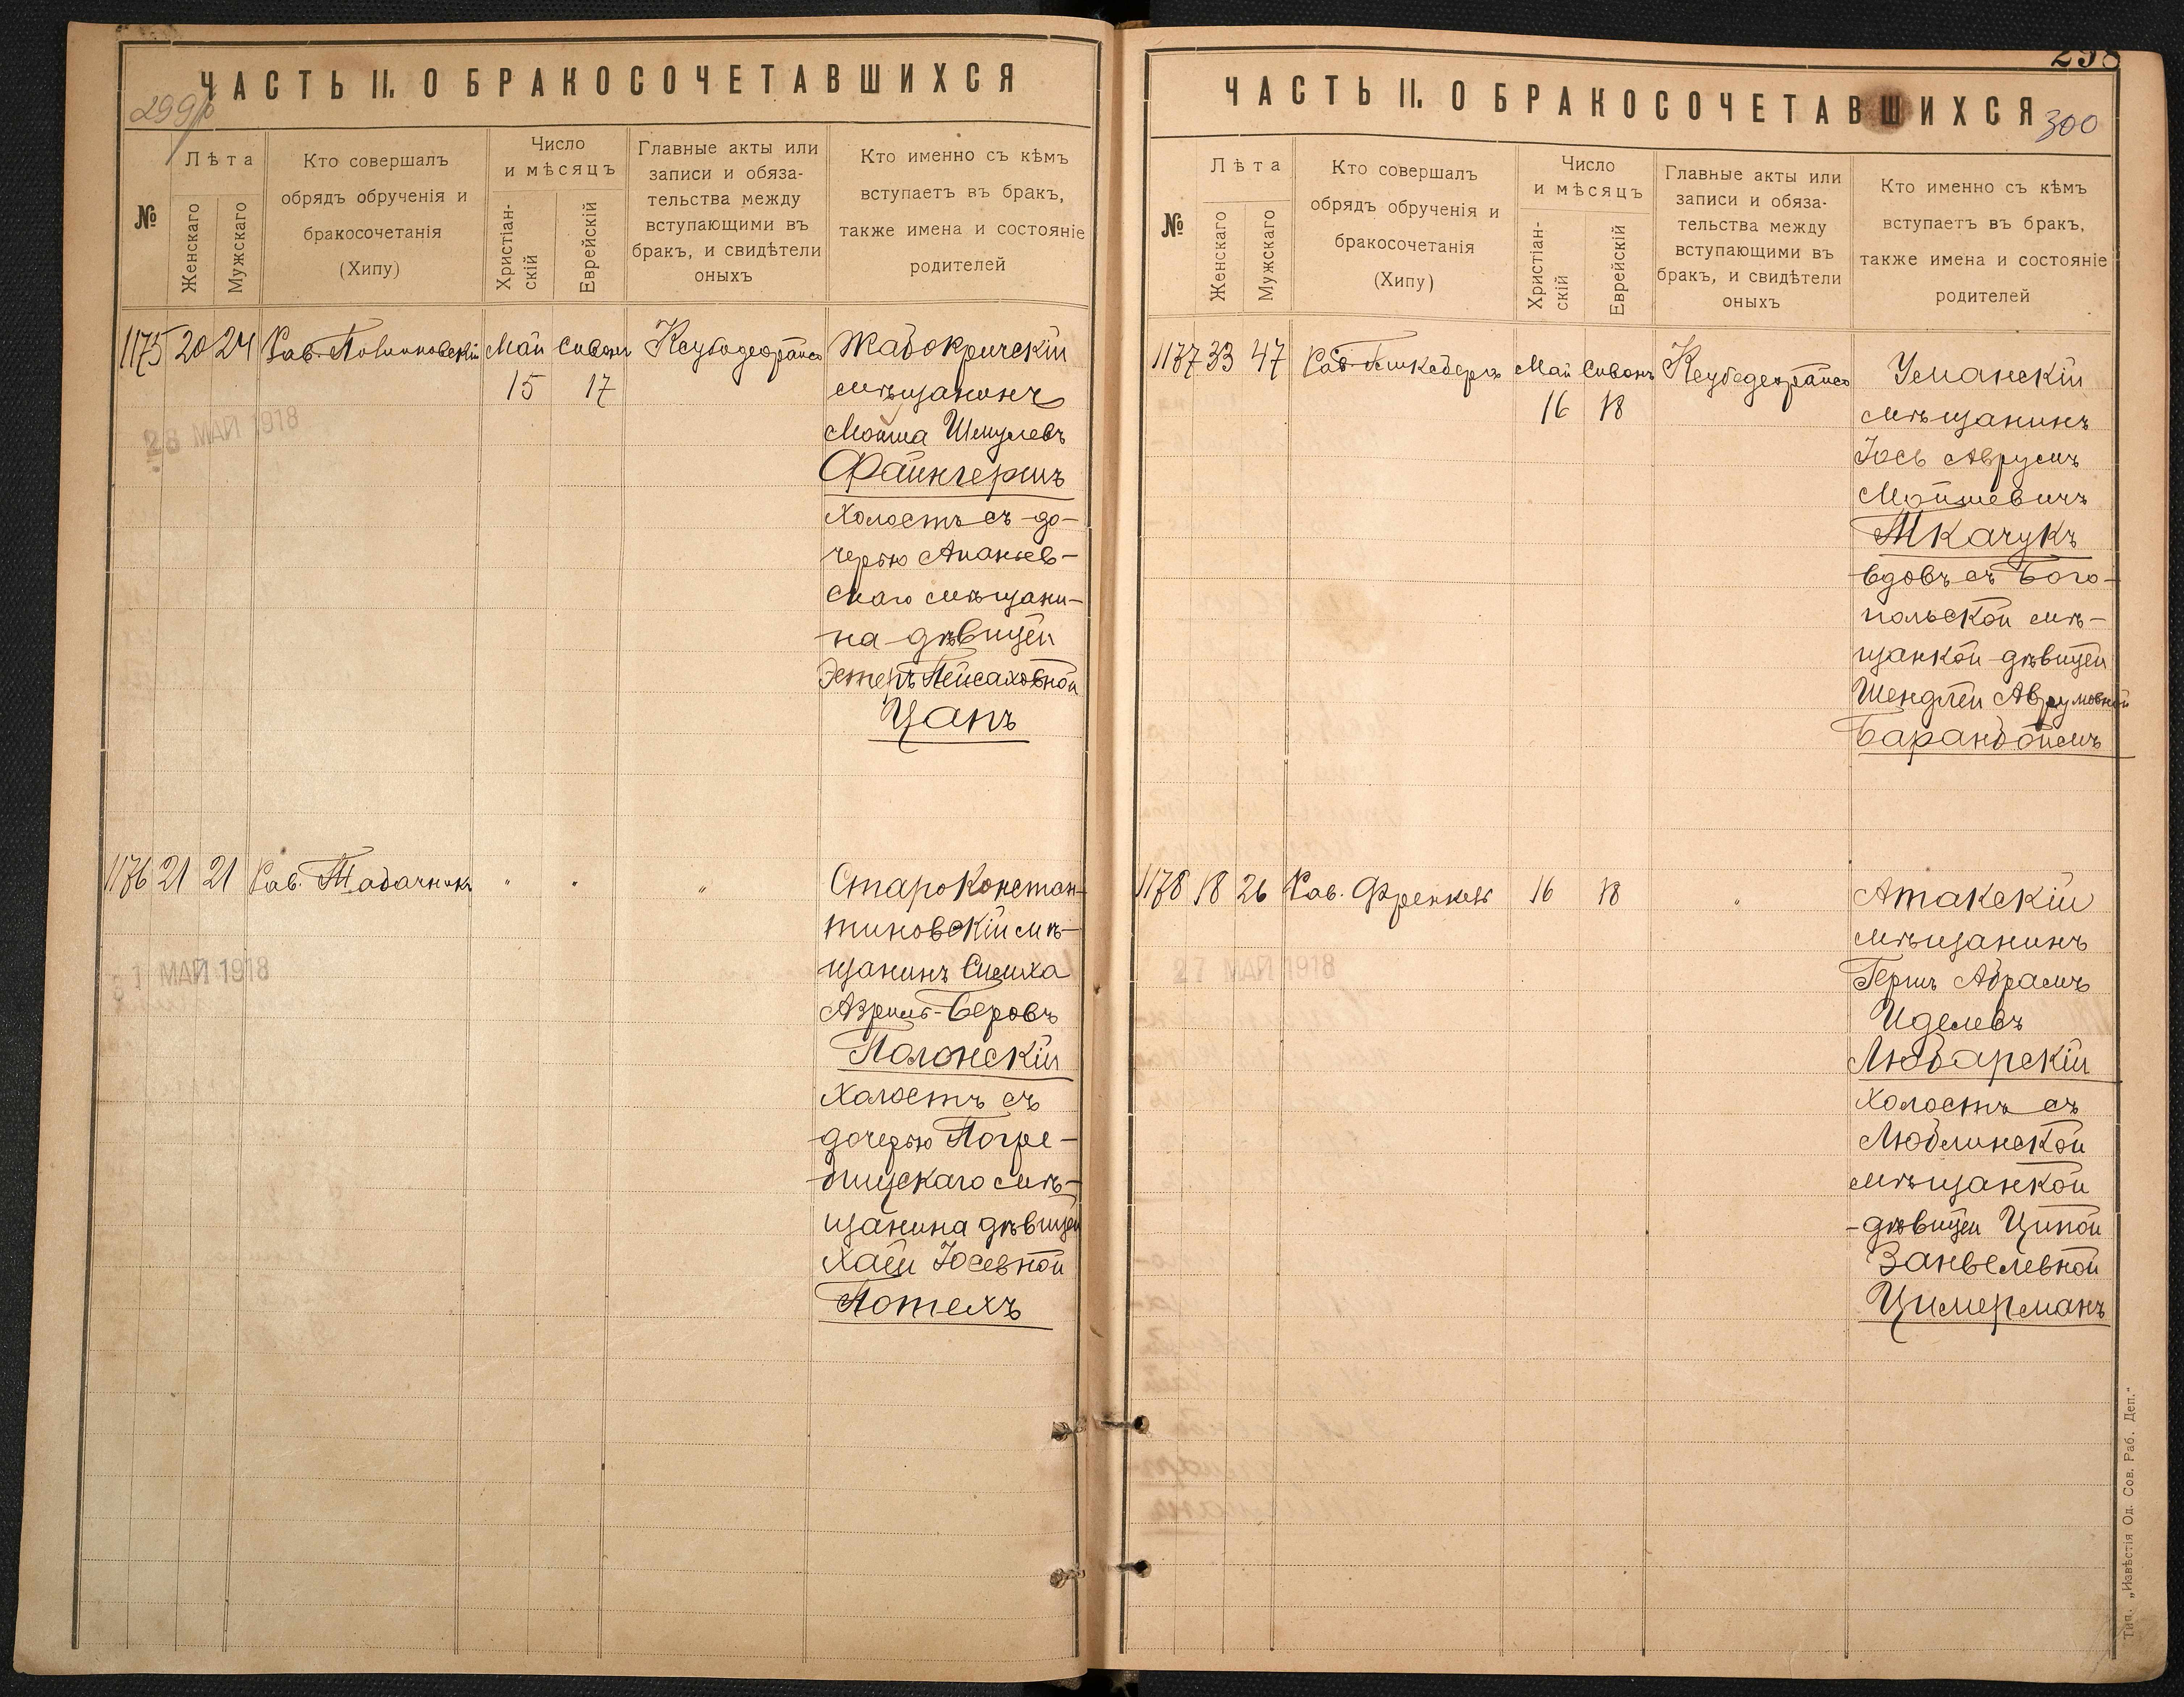 ЧАСТЬ II. О БРАКОСОЧЕТАВШИХСЯ
299
№
Лѣта
Женскаго
Мужскаго
Кто совершалъ
обрядъ обрученія и
бракосочетанія
(Хипу)
Число
и мѣсяцъ
Христіан-
скій
Еврейскій
Главные акты или
записи и обяза-
тельства между
вступающими въ
бракъ, и свидѣтели
оныхъ
Кто именно съ кѣмъ
вступаетъ въ бракъ,
также имена и состояніе
родителей
1175 20 24 Рав. Май Сивонъ
15 17
28 МАЙ 1918
Жабокричскій
мѣщанинъ
Мойша Шмулевъ
Файнгершъ
холостъ съ до-
черью Ананьев-
скаго мѣщани-
на дѣвицей
Эстеръ Пейсаховной
Цапъ
1176 21 21 Рав. Табачникъ " " "
31 МАЙ 1918
Староконстан-
тиновскій мѣ-
щанинъ Симха
Азриль-Беровъ
Полонскій
холостъ съ
дочерью Погре-
бищскаго мѣ-
щанина дѣвицей
Хаей Юсевной
Потехъ
298
ЧАСТЬ II. О БРАКОСОЧЕТАВШИХСЯ
300
№
Лѣта
Женскаго
Мужскаго
Кто совершалъ
обрядъ обрученія и
бракосочетанія
(Хипу)
Число
и мѣсяцъ
Христіан-
скій
Еврейскій
Главные акты или
записи и обяза-
тельства между
вступающими въ
бракъ, и свидѣтели
оныхъ
Кто именно съ кѣмъ
вступаетъ въ бракъ,
также имена и состояніе
родителей
1177 33 47 Рав. Май Сивонъ
16 18
Уманскій
мѣщанинъ
Іось Аврумъ
Мойшевичъ
Ткачукъ
вдовъ съ Бого-
польской мѣ-
щанкой дѣвицей
Шендлей Аврумовной
Баранбоймъ
1178 18 26 Рав. Френкель 16 18 "
27 МАЙ 1918
Атакскій
мѣщанинъ
Гершъ Абрамъ
Иделевъ
Любарскій
холостъ съ
Люблинской
мѣщанкой
дѣвицей Ципой
Занвелевной
Цимерманъ
Тип. „Извѣстія Од. Сов. Раб. Деп."